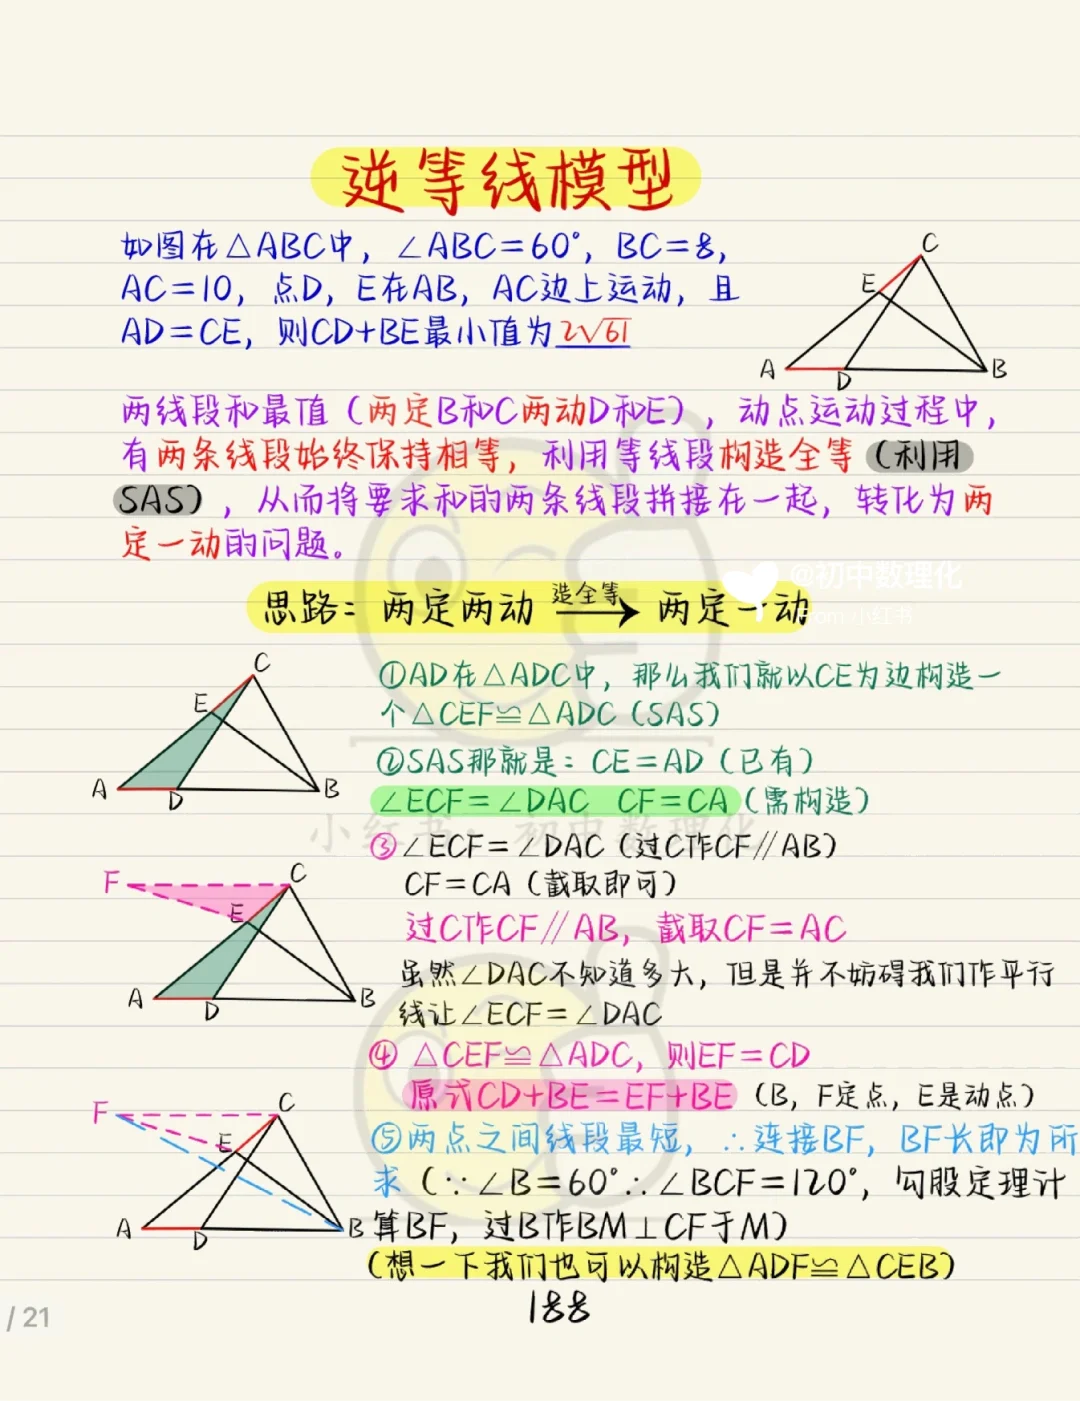 逆等线模型
如图在△ABC中，∠ABC=60°，BC=8，
AC=10，点D，E在AB，AC边上运动，且
AD=CE，则CD+BE最小值为2√61
C
E
A
D
B
两线段和最值（两定B和C两动D和E），动点运动过程中，
有两条线段始终保持相等，利用等线段构造全等（利用
SAS），从而将要求和的两条线段拼接在一起，转化为两
定一动的问题。
@初中数理化
From 小红书
思路：两定两动 造全等→ 两定一动
C
E
A
D
B
①AD在△ADC中，那么我们就以CE为边构造一
个△CEF≌△ADC（SAS）
②SAS那就是：CE=AD（已有）
∠ECF=∠DAC CF=CA（需构造）
小红书：初中数理化
③∠ECF=∠DAC（过C作CF∥AB）
CF=CA（截取即可）
F
C
E
A
D
B
过C作CF∥AB，截取CF=AC
虽然∠DAC不知道多大，但是并不妨碍我们作平行
线让∠ECF=∠DAC
④ △CEF≌△ADC，则EF=CD
原式CD+BE=EF+BE（B，F定点，E是动点）
F
C
E
A
D
B
⑤两点之间线段最短，∴连接BF，BF长即为所
求（∵∠B=60°∴∠BCF=120°，勾股定理计
算BF，过B作BM⊥CF于M）
（想一下我们也可以构造△ADF≌△CEB）
188
/ 21